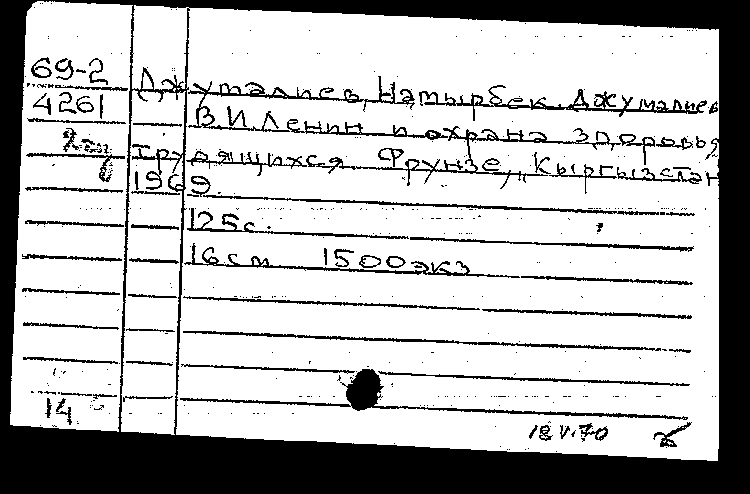 69-2
4261
Джумалиев, Натырбек Джумалиев
В.И. Ленин и охрана здоровья
трудящихся Фрунзе, „Кыргызстан
1969.
125с.
16см 1500экз
14
18.V.70